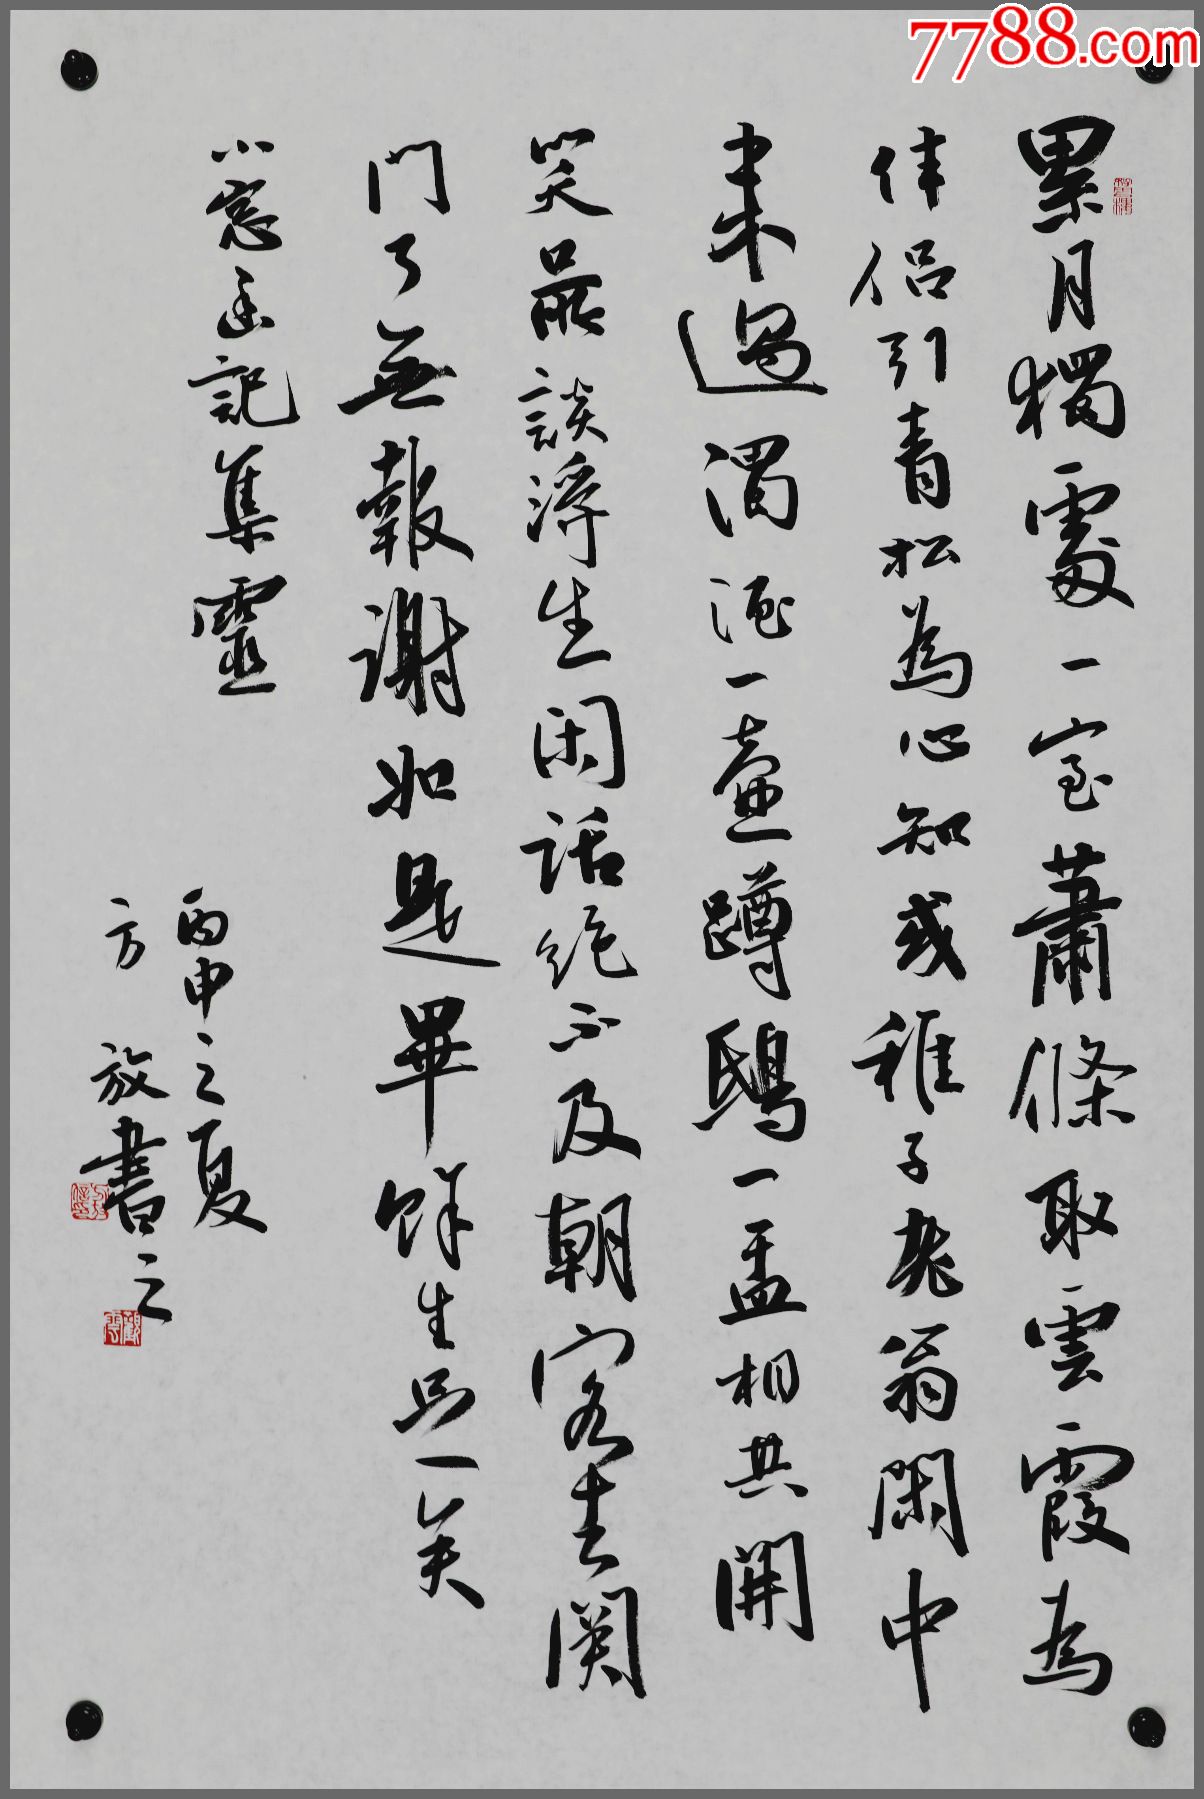 7788.com
累月獨處一室蕭條取雲霞為
伴侶引青松為心知或稚子老翁閑中
來過濁酒一壺蹲鴟一盂相共開
笑口所談浮生閑話絕不及朝客去関
門了無報謝如是畢餘生足矣
小窓幽記集靈
丙申之夏
方放書之